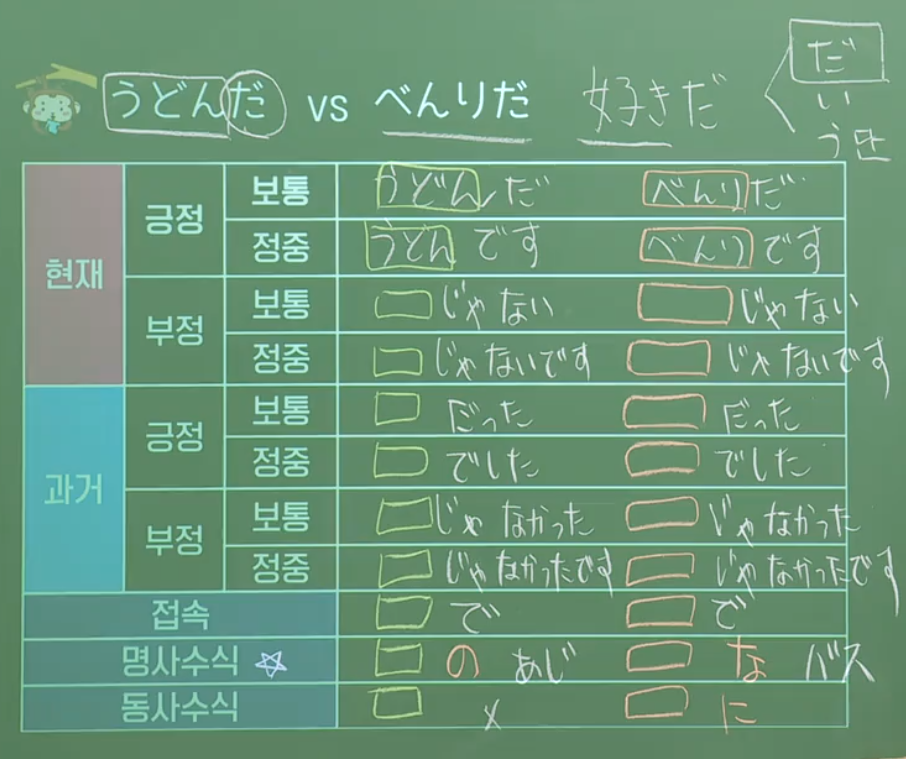 うどんだ vs べんりだ 好きだ だ
い
う단
현재 긍정 보통 うどんだ べんりだ
정중 うどんです べんりです
부정 보통 じゃない じゃない
정중 じゃないです じゃないです
과거 긍정 보통 だった だった
정중 でした でした
부정 보통 じゃなかった じゃなかった
정중 じゃなかったです じゃなかったです
접속 で で
명사수식 の あじ な バス
동사수식 x に